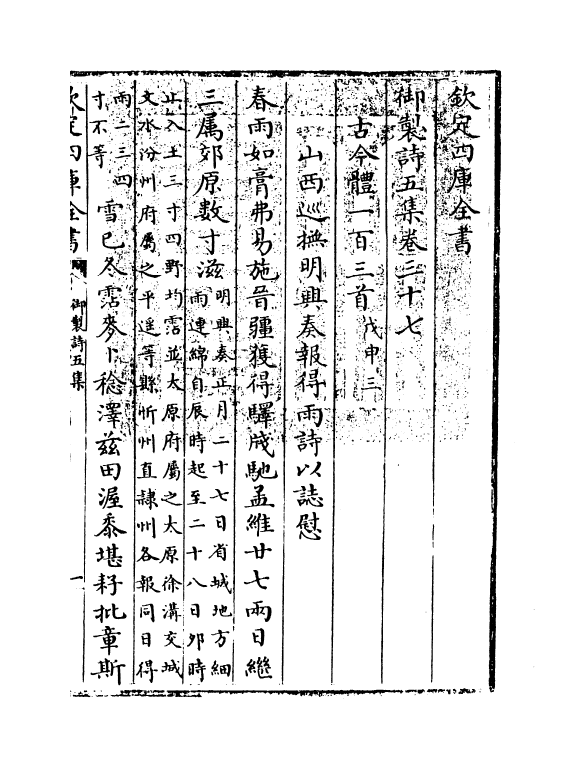 欽定四庫全書
御製詩五集卷三十七
古今體一百三首戊申三
山西巡撫明興奏報得雨詩以誌慰
春雨如膏弗易施晉疆獲得驛牋馳孟維廿七兩日繼
三属郊原數寸滋明興奏正月二十七日省城地方細
雨連綿自辰時起至二十八日夘時
止入土三寸四野均霑並太原府屬之太原徐溝交城
文水汾州府屬之平遥等縣忻州直隷州各報同日得
雨二三四
寸不等雪已冬霑麥卜稔澤兹田渥黍堪耔批章斯
欽定四庫全書
御製詩五集
一